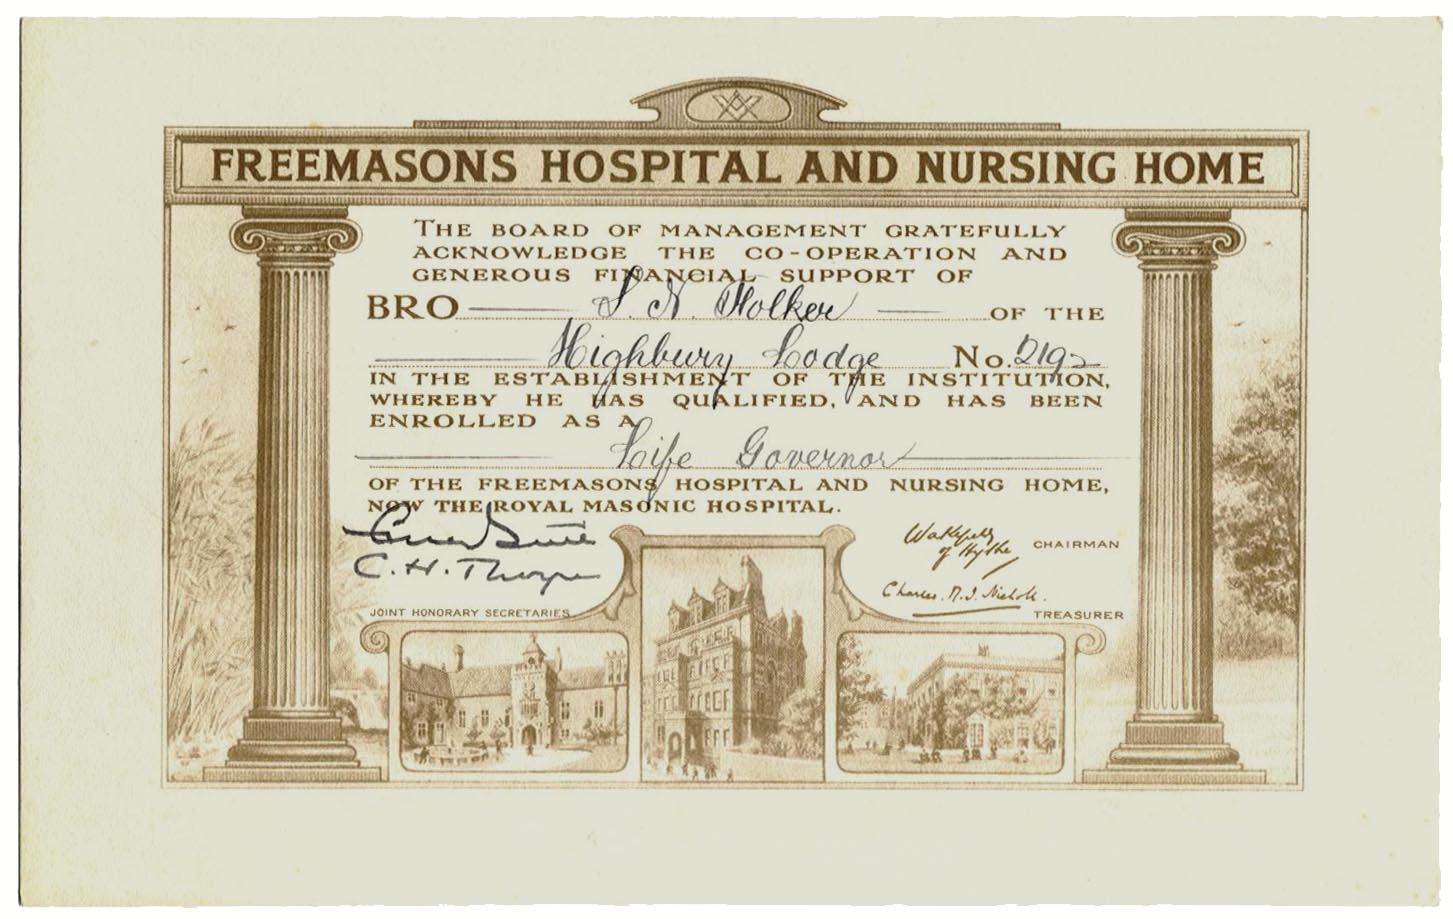 FREEMASONS HOSPITAL AND NURSING HOME
THE BOARD OF MANAGEMENT GRATEFULLY
ACKNOWLEDGE THE CO-OPERATION AND
GENEROUS FINANCIAL SUPPORT OF
BRO S. N. Holker OF THE
Highbury Lodge No. 2192
IN THE ESTABLISHMENT OF THE INSTITUTION,
WHEREBY HE HAS QUALIFIED, AND HAS BEEN
ENROLLED AS A
Life Governor
OF THE FREEMASONS HOSPITAL AND NURSING HOME,
NOW THE ROYAL MASONIC HOSPITAL.
C. H. Thorpe
JOINT HONORARY SECRETARIES
Wakefield
of Hythe CHAIRMAN
Charles
TREASURER